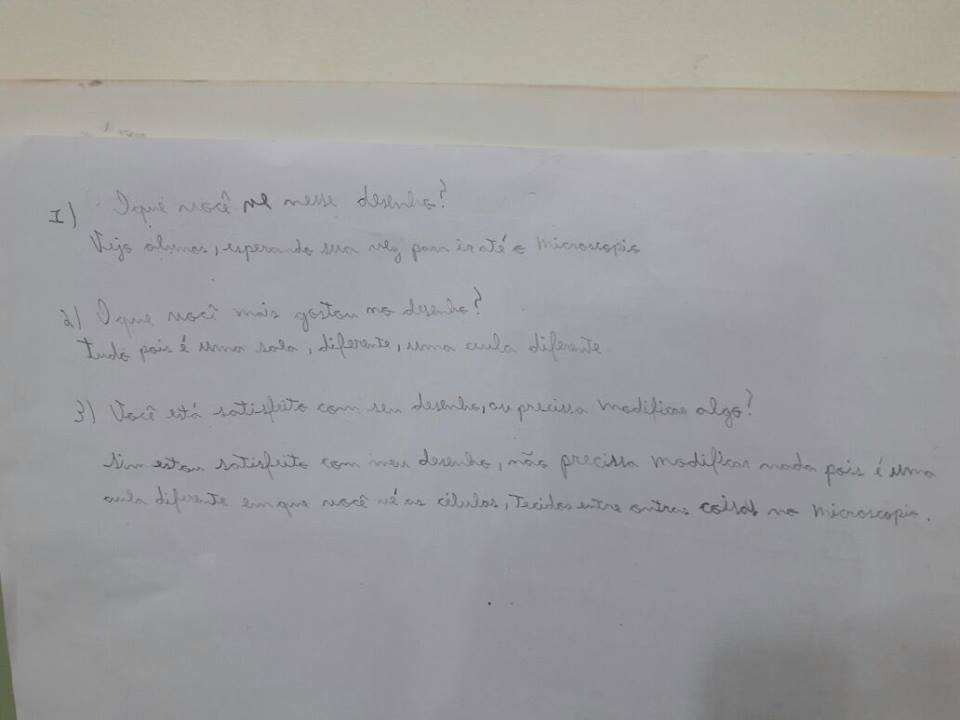 1) O que você vê nesse desenho?
Vejo alunos, esperando sua vez para ir até o microscopio
2) O que você mais gostou no desenho?
Tudo pois é uma sala, diferente, uma aula diferente
3) Você está satisfeito com seu desenho, ou precissa modificar algo?
Sim estou satisfeito com meu desenho, não precissa modificar nada pois é uma
aula diferente em que você vê as células, Tecidos entre outras coisas no microscopio.